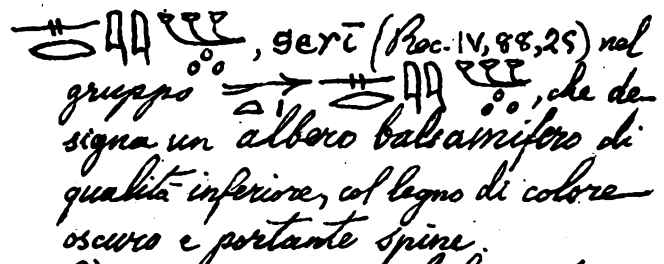 , serī (Rec. IV, 88, 25) nel
gruppo , che de-
signa un albero balsamifero di
qualità inferiore, col legno di colore
oscuro e portante spine.